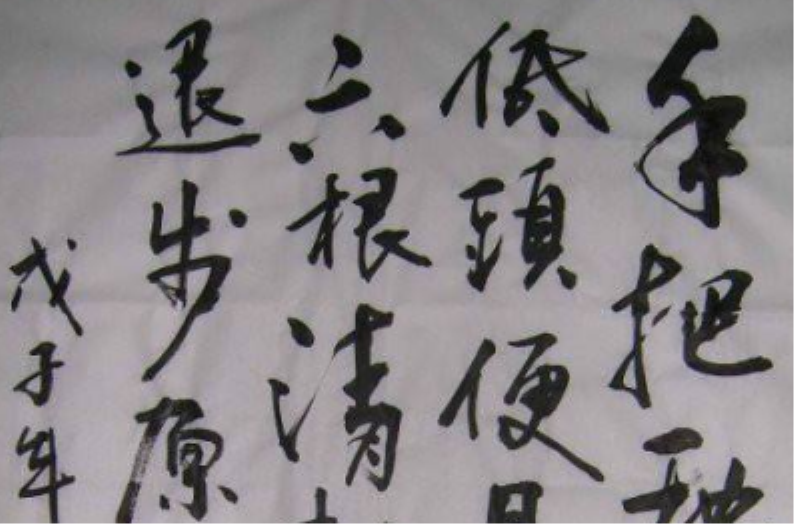 手把
低頭便
六根清
退步原
戊子年